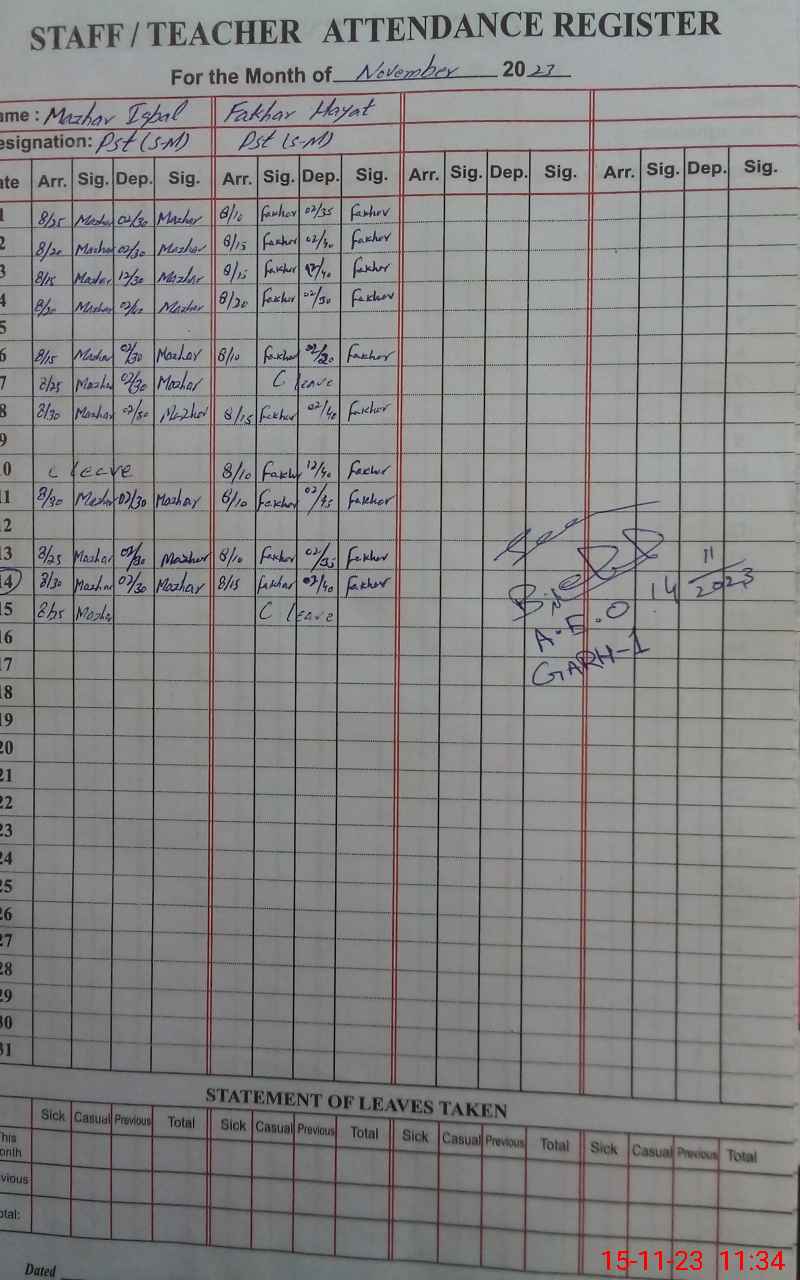 STAFF / TEACHER ATTENDANCE REGISTER
For the Month of November 2023
ame : Mazhar Iqbal Fakhar Hayat
esignation: Pst (S-M) Pst (S-M)
ate Arr. Sig. Dep. Sig. Arr. Sig. Dep. Sig. Arr. Sig. Dep. Sig. Arr. Sig. Dep. Sig.
1 8/25 Mazhar 02/30 Mazhar 8/10 Fakhar 02/35 Fakhar
2 8/20 Mazhar 02/30 Mazhar 8/15 Fakhar 02/40 Fakhar
3 8/15 Mazhar 12/30 Mazhar 8/15 Fakhar 12/40 Fakhar
4 8/20 Mazhar Mazhar 8/20 Fakhar 02/30 Fakhar
5
6 8/15 Mazhar 02/30 Mazhar 8/10 Fakhar Fakhar
7 8/25 Mazhar 02/30 Mazhar C leave
8 8/30 Mazhar 02/30 Mazhar 8/15 Fakhar 02/40 Fakhar
9
0 C leave 8/10 Fakhar 12/40 Fakhar
11 8/30 Mazhar 02/30 Mazhar 8/10 Fakhar 02/45 Fakhar
12
13 8/25 Mazhar 02/30 Mazhar 8/10 Fakhar 02/35 Fakhar
14 8/30 Mazhar 02/30 Mazhar 8/15 Fakhar 02/40 Fakhar 14 11/2023
15 8/25 Mazhar C leave A.E.O
16 GARH-1
17
18
19
20
21
22
23
24
25
26
27
28
29
30
31
STATEMENT OF LEAVES TAKEN
Sick Casual Previous Total Sick Casual Previous Total Sick Casual Previous Total Sick Casual Previous Total
This
onth
vious
otal:
Dated
15-11-23 11:34